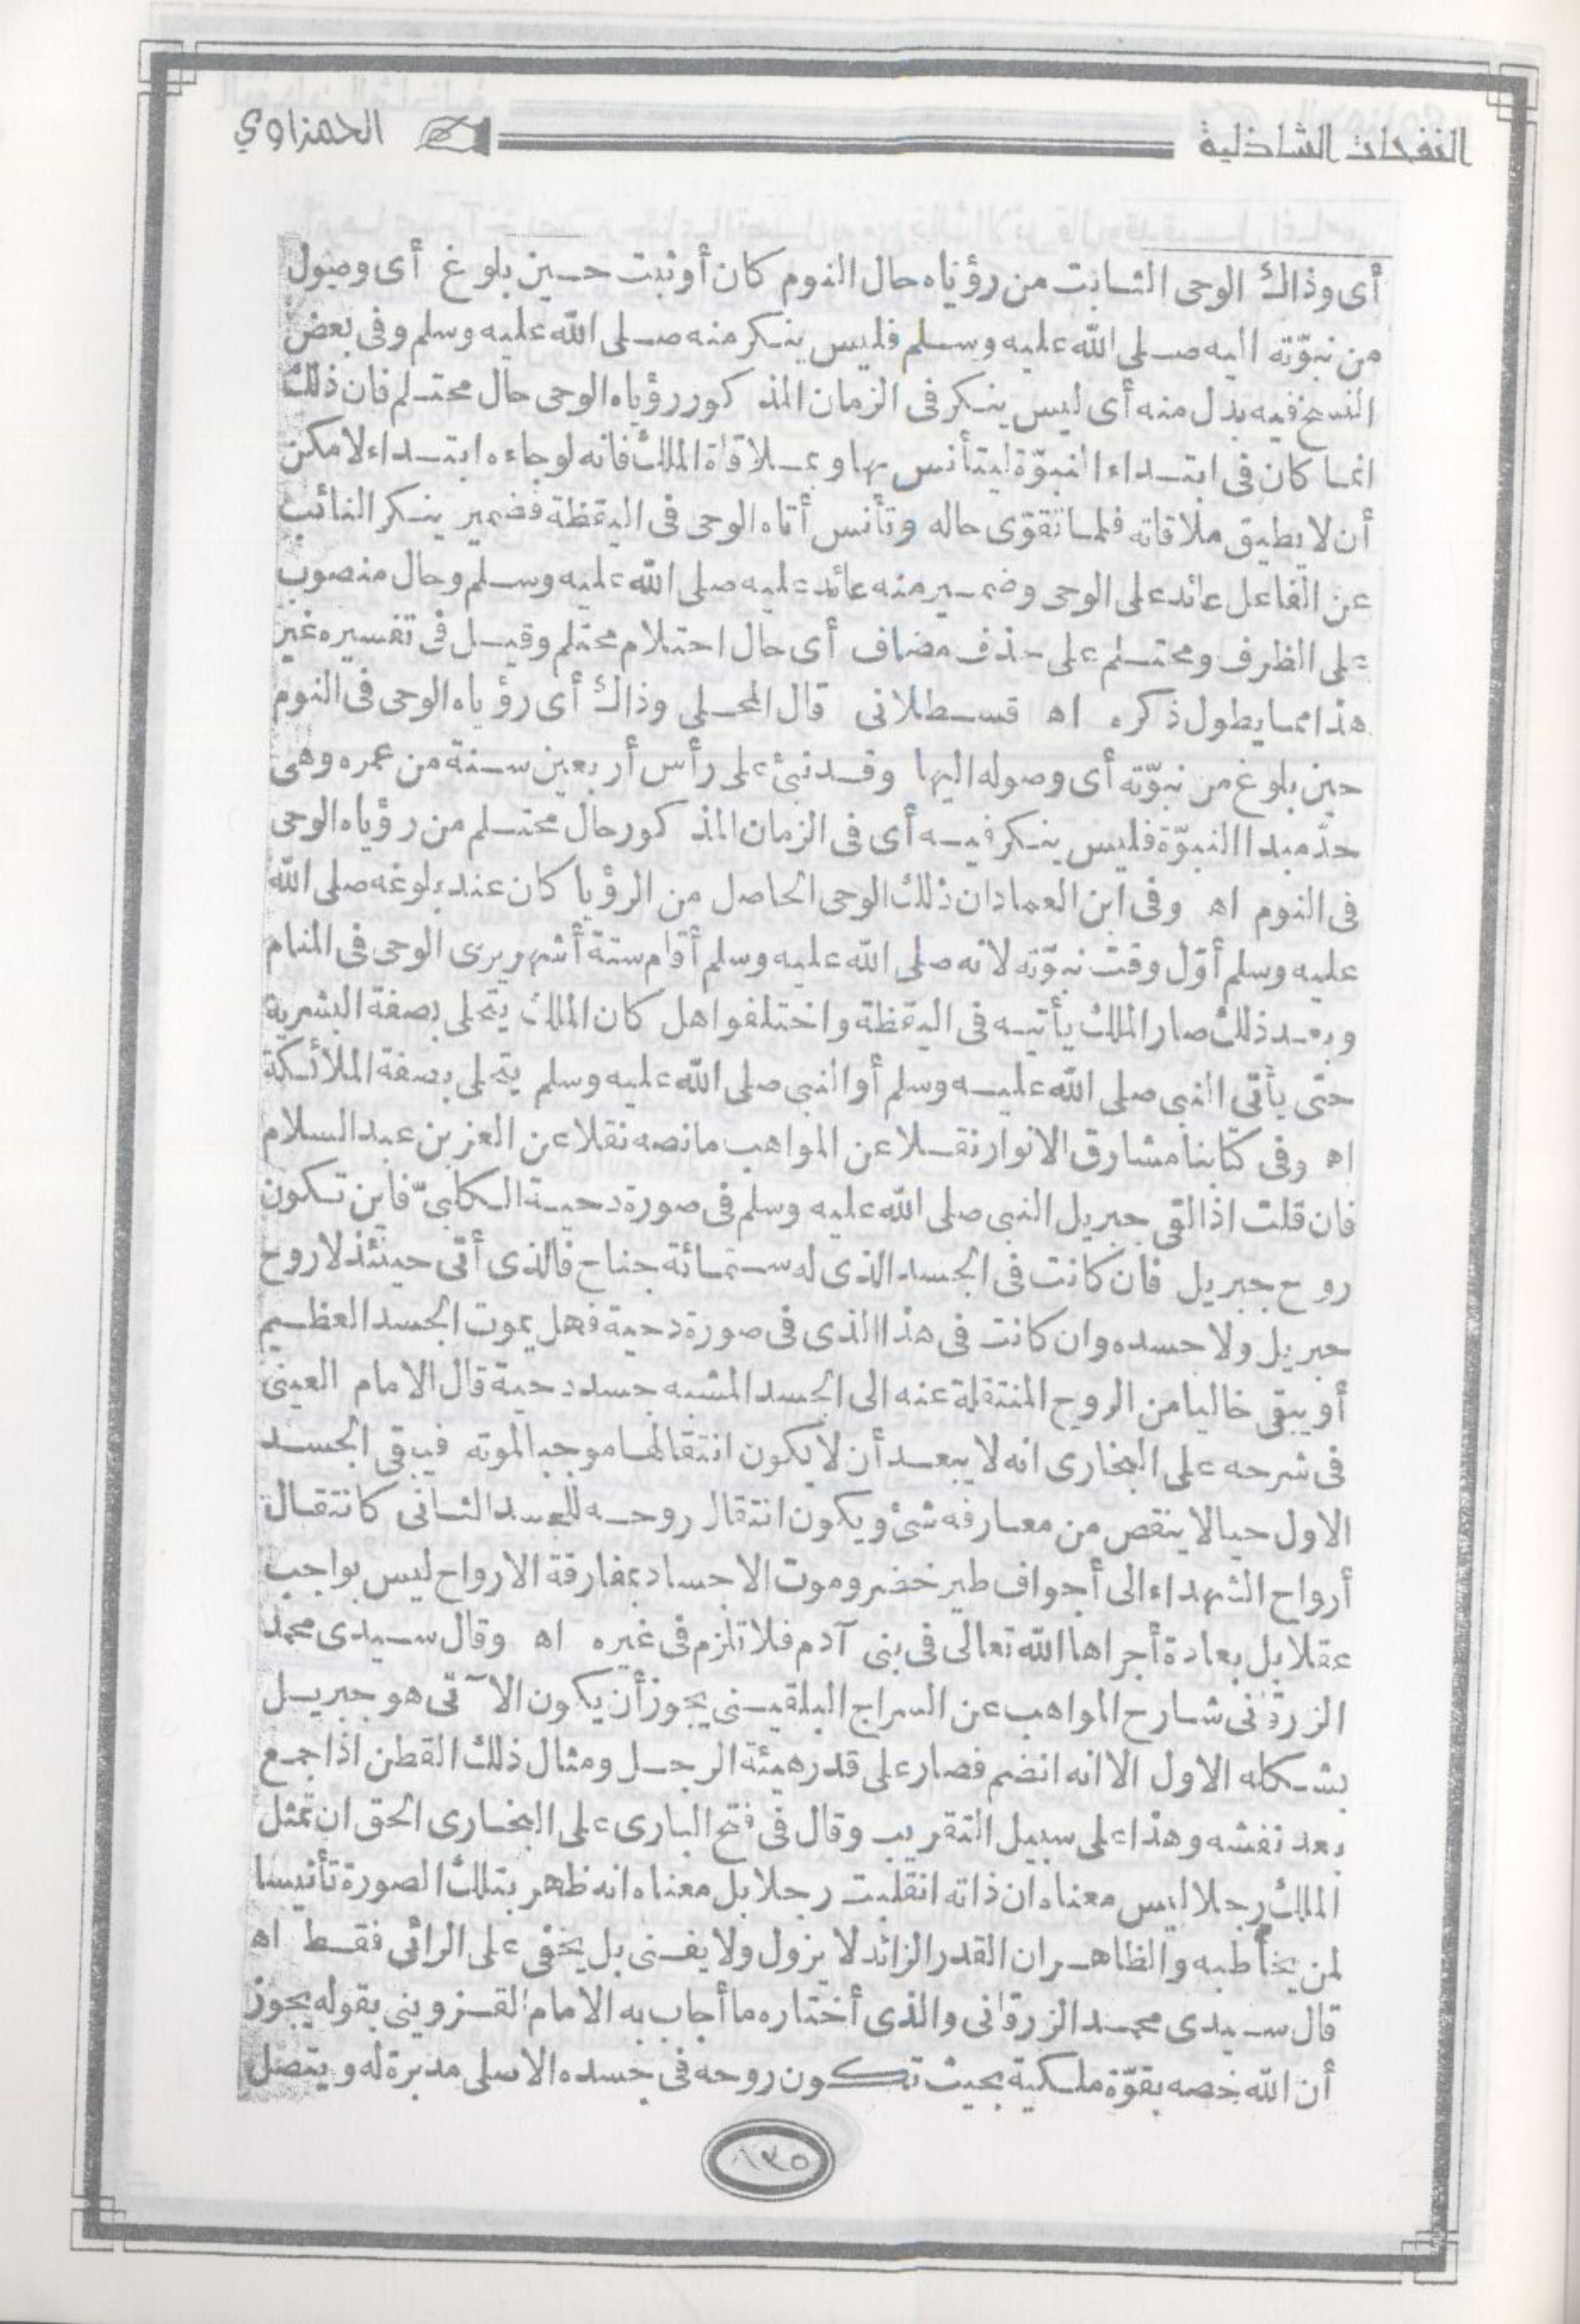 النفحات الشاذلية الحمزاوي
أى وذاك الوحى الثابت من رؤياه حال النوم كان أو ثبت حين بلوغ أى وصول
من نبوّته اليه صلى الله عليه وسلم فليس ينكر منه صلى الله عليه وسلم وفى بعض
النسخ فيه بدل منه أى ليس ينكر فى الزمان المذكور رؤياه الوحى حال محتلم فان ذلك
انما كان فى ابتداء النبوّة ليتأنس بها وبملاقاة الملك فانه لو جاءه ابتداء لامكن
أن لا يطيق ملاقاته فلما تقوّى حاله وتأنس أتاه الوحى فى اليقظة فضمير ينكر النائب
عن الفاعل عائد على الوحى وضمير منه عائد عليه صلى الله عليه وسلم وحال منصوب
على الظرف ومحتلم على حذف مضاف أى حال احتلام محتلم وقيل فى تفسيره غير
هذا مما يطول ذكره اه قسطلانى قال المحلى وذاك أى رؤياه الوحى فى النوم
حين بلوغ من نبوّته أى وصوله اليها وقد نبئ على رأس أربعين سنة من عمره وهى
حدّ مبدا النبوّة فليس ينكر فيه أى فى الزمان المذكور حال محتلم من رؤياه الوحى
فى النوم اه وفى ابن العماد ان ذلك الوحى الحاصل من الرؤيا كان عند بلوغه صلى الله
عليه وسلم أوّل وقت نبوّته لانه صلى الله عليه وسلم أقام ستة أشهر يرى الوحى فى المنام
وبعد ذلك صار الملك يأتيه فى اليقظة واختلفوا هل كان الملك يتحلى بصفة البشرية
حتى يأتى النبى صلى الله عليه وسلم أو النبى صلى الله عليه وسلم يتحلى بصفة الملائكة
اه وفى كتابنا مشارق الانوار نقلا عن المواهب ما نصه نقلا عن العز بن عبد السلام
فان قلت اذا لقى جبريل النبى صلى الله عليه وسلم فى صورة دحية الكلبىّ فاين تكون
روح جبريل فان كانت فى الجسد الذى له ستمائة جناح فالذى أتى حينئذ لا روح
جبريل ولا جسده وان كانت فى هذا الذى فى صورة دحية فهل يموت الجسد العظيم
أو يبقى خاليا من الروح المنتقلة عنه الى الجسد المشبه جسد دحية قال الامام العينى
فى شرحه على البخارى انه لا يبعد أن لا يكون انتقالها موجبا لموته فيبقى الجسد
الاول حيا لا ينقص من معارفه شئ ويكون انتقال روحه للجسد الثانى كانتقال
أرواح الشهداء الى أجواف طير خضر وموت الاجساد بمفارقة الارواح ليس بواجب
عقلا بل بعادة أجراها الله تعالى فى بنى آدم فلا تلزم فى غيره اه وقال سيدى محمد
الزرقانى شارح المواهب عن السراج البلقينى يجوز أن يكون الآتى هو جبريل
بشكله الاول الا انه انضم فصار على قدر هيئة الرجل ومثال ذلك القطن اذا جمع
بعد نفشه وهذا على سبيل التقريب وقال فى فتح البارى على البخارى الحق ان تمثل
الملك رجلا ليس معناه ان ذاته انقلبت رجلا بل معناه انه ظهر بتلك الصورة تأنيسا
لمن يخاطبه والظاهر ان القدر الزائد لا يزول ولا يفنى بل يخفى على الرائى فقط اه
قال سيدى محمد الزرقانى والذى أختاره ما أجاب به الامام القزوينى بقوله يجوز
أن الله خصه بقوّة ملكية بحيث تكون روحه فى جسده الاصلى مدبرة له ويتصل